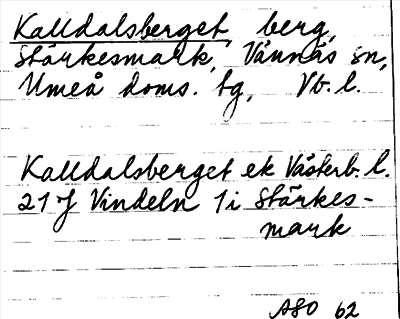 Kalldalsberget, berg,
Stärkesmark, Vännäs sn,
Umeå doms. tg, Vb. l.
Kalldalsberget ek Västerb. l.
21 f Vindeln 1 i Stärkes-
mark
ASO 62